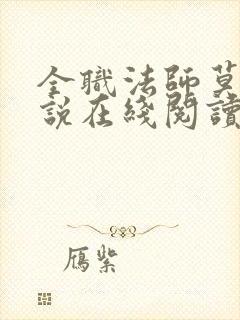 全職法師莫
說在綫閱讀
鴈紫